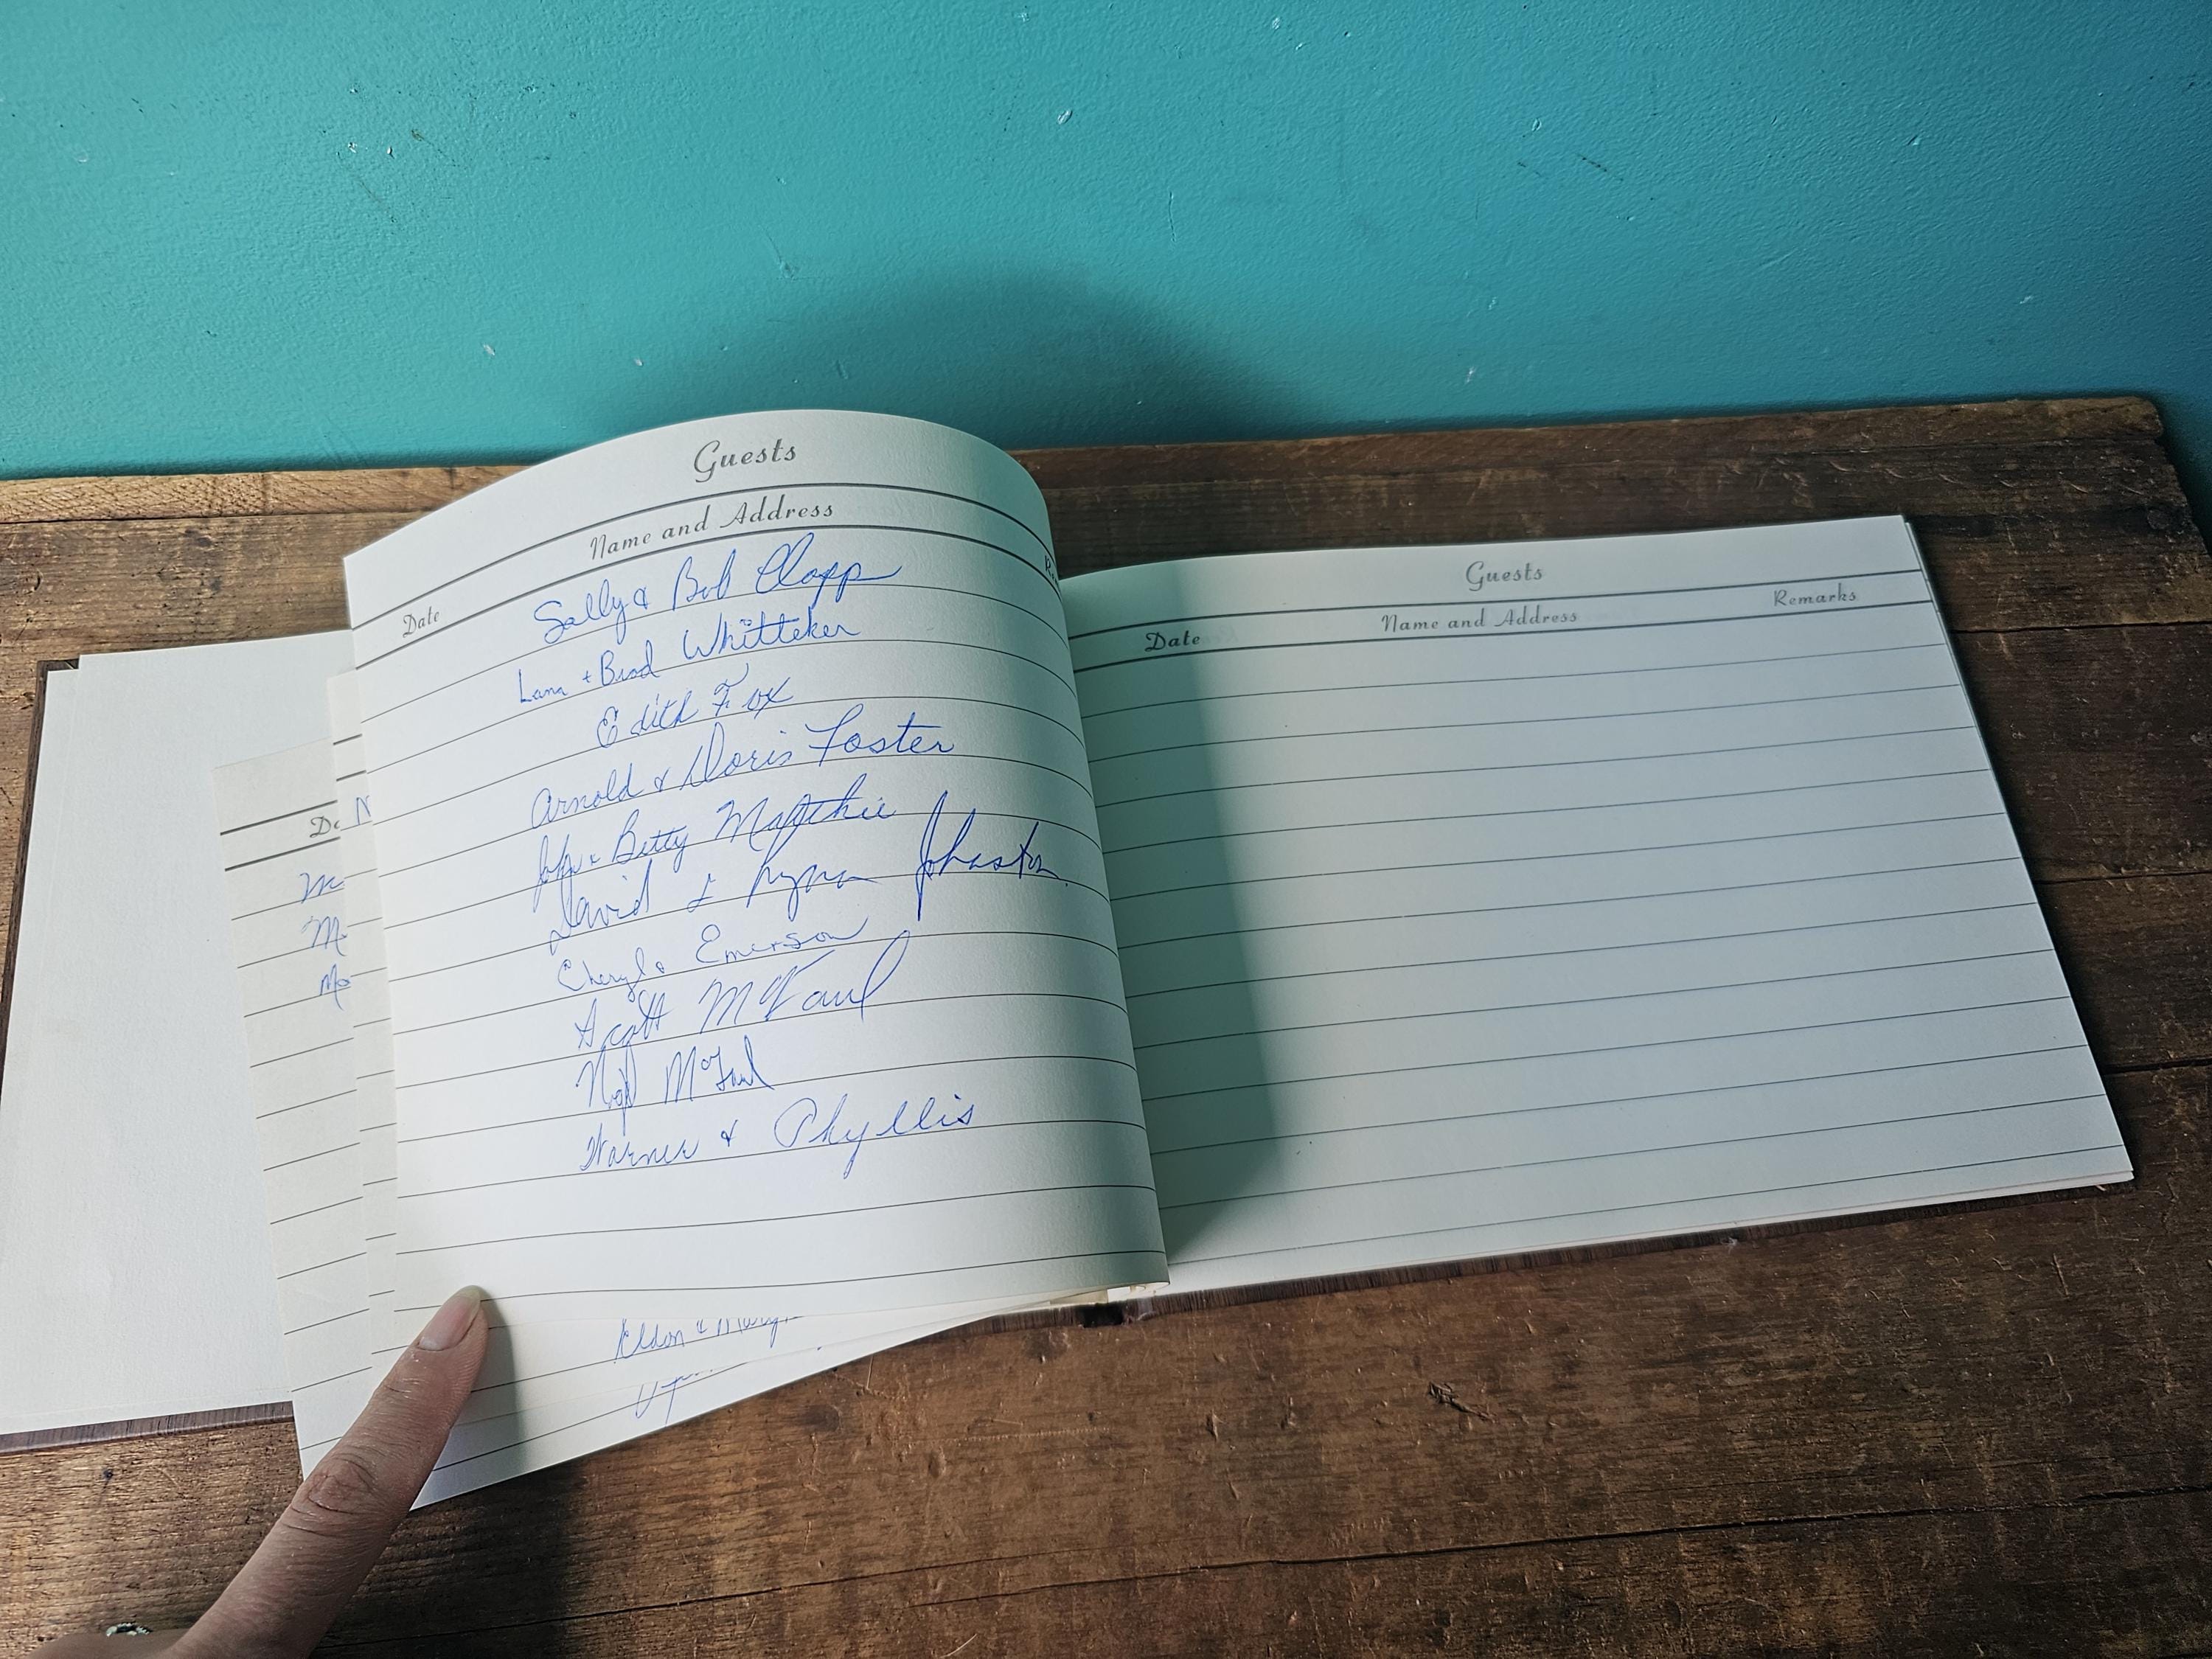 Guests
Name and Address
Date
Sally & Bob Clapp
Lana + Brad Whitteker
Edith Fox
Arnold & Doris Foster
John & Betty Matthie
David & Lynn Johnston
Cheryl & Emerson
Scott McFaul
McFaul
Warner & Phyllis
Eldon &
Guests
Date Name and Address Remarks